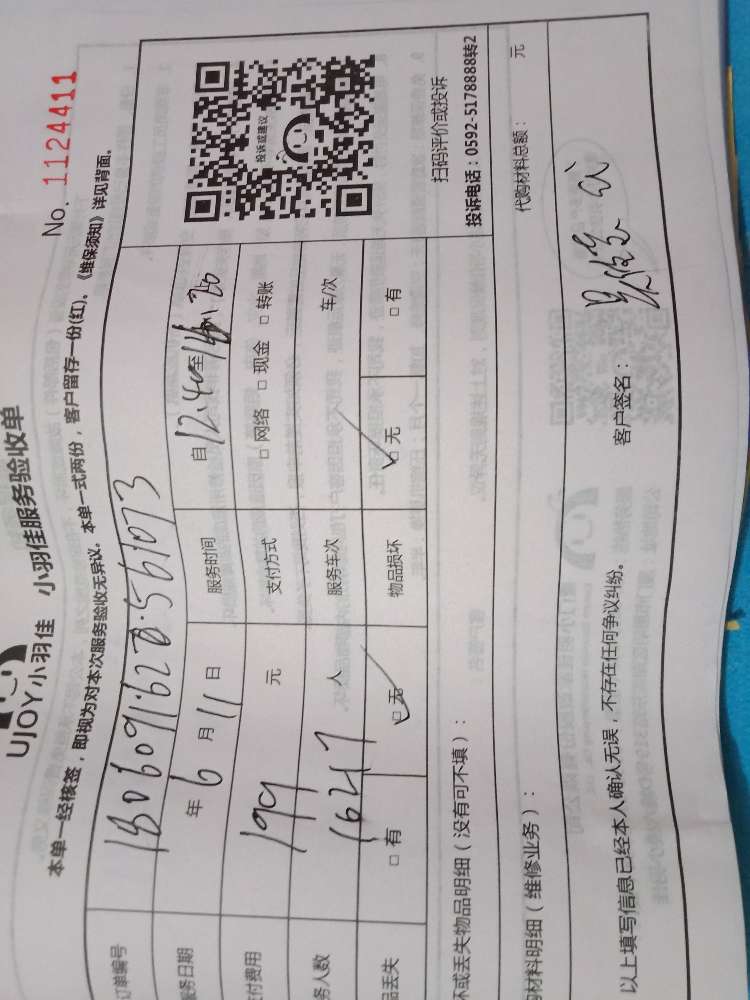 UJOY小羽佳 小羽佳服务验收单
No. 1124411
本单一经核签，即视为对本次服务验收无异议。本单一式两份，客户留存一份(红)。《维保须知》详见背面。
订单编号
服务日期 年 6 月 11 日 服务时间 自 12:40 至
支付费用 199 元 支付方式 □ 网络 □ 现金 □ 转账
务人数 人 服务车次 车/次
品丢失 □ 有 □ 无 物品损坏 □ 无 □ 有
投诉或建议
扫码评价或投诉
投诉电话：0592-5178888转2
坏或丢失物品明细（没有可不填）：
材料明细（维修业务）： 代购材料总额： 元
以上填写信息已经本人确认无误，不存在任何争议纠纷。 客户签名：